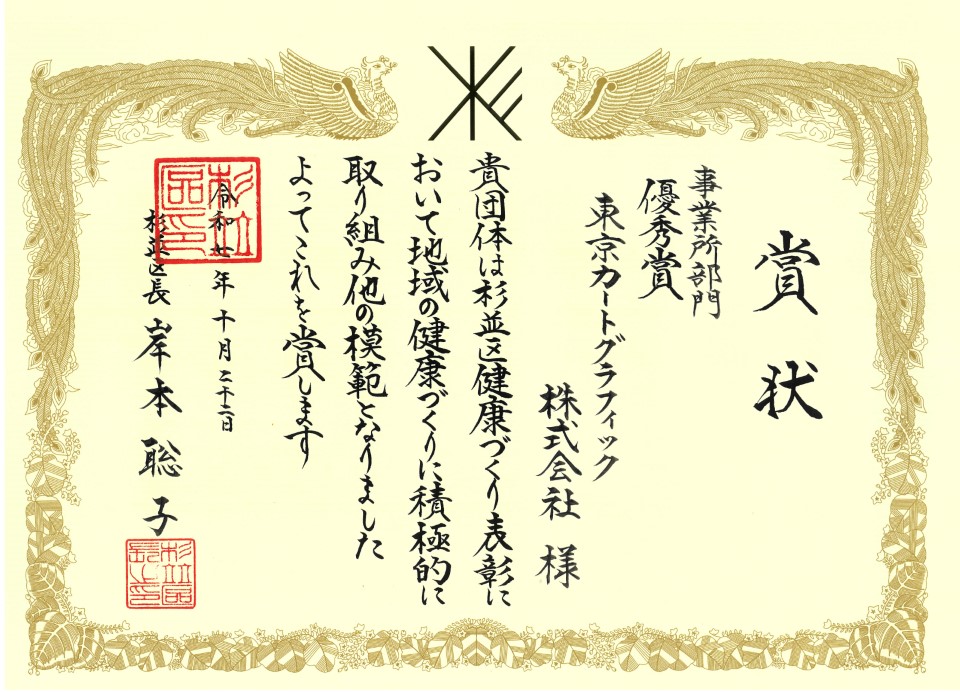 賞状
事業所部門
優秀賞
東京カートグラフィック
株式会社 様
貴団体は杉並区健康づくり表彰に
おいて地域の健康づくりに積極的に
取り組み他の模範となりました
よってこれを賞します
令和七年十月二十二日
杉並区長 岸本聡子
杉並区印
杉並区長之印